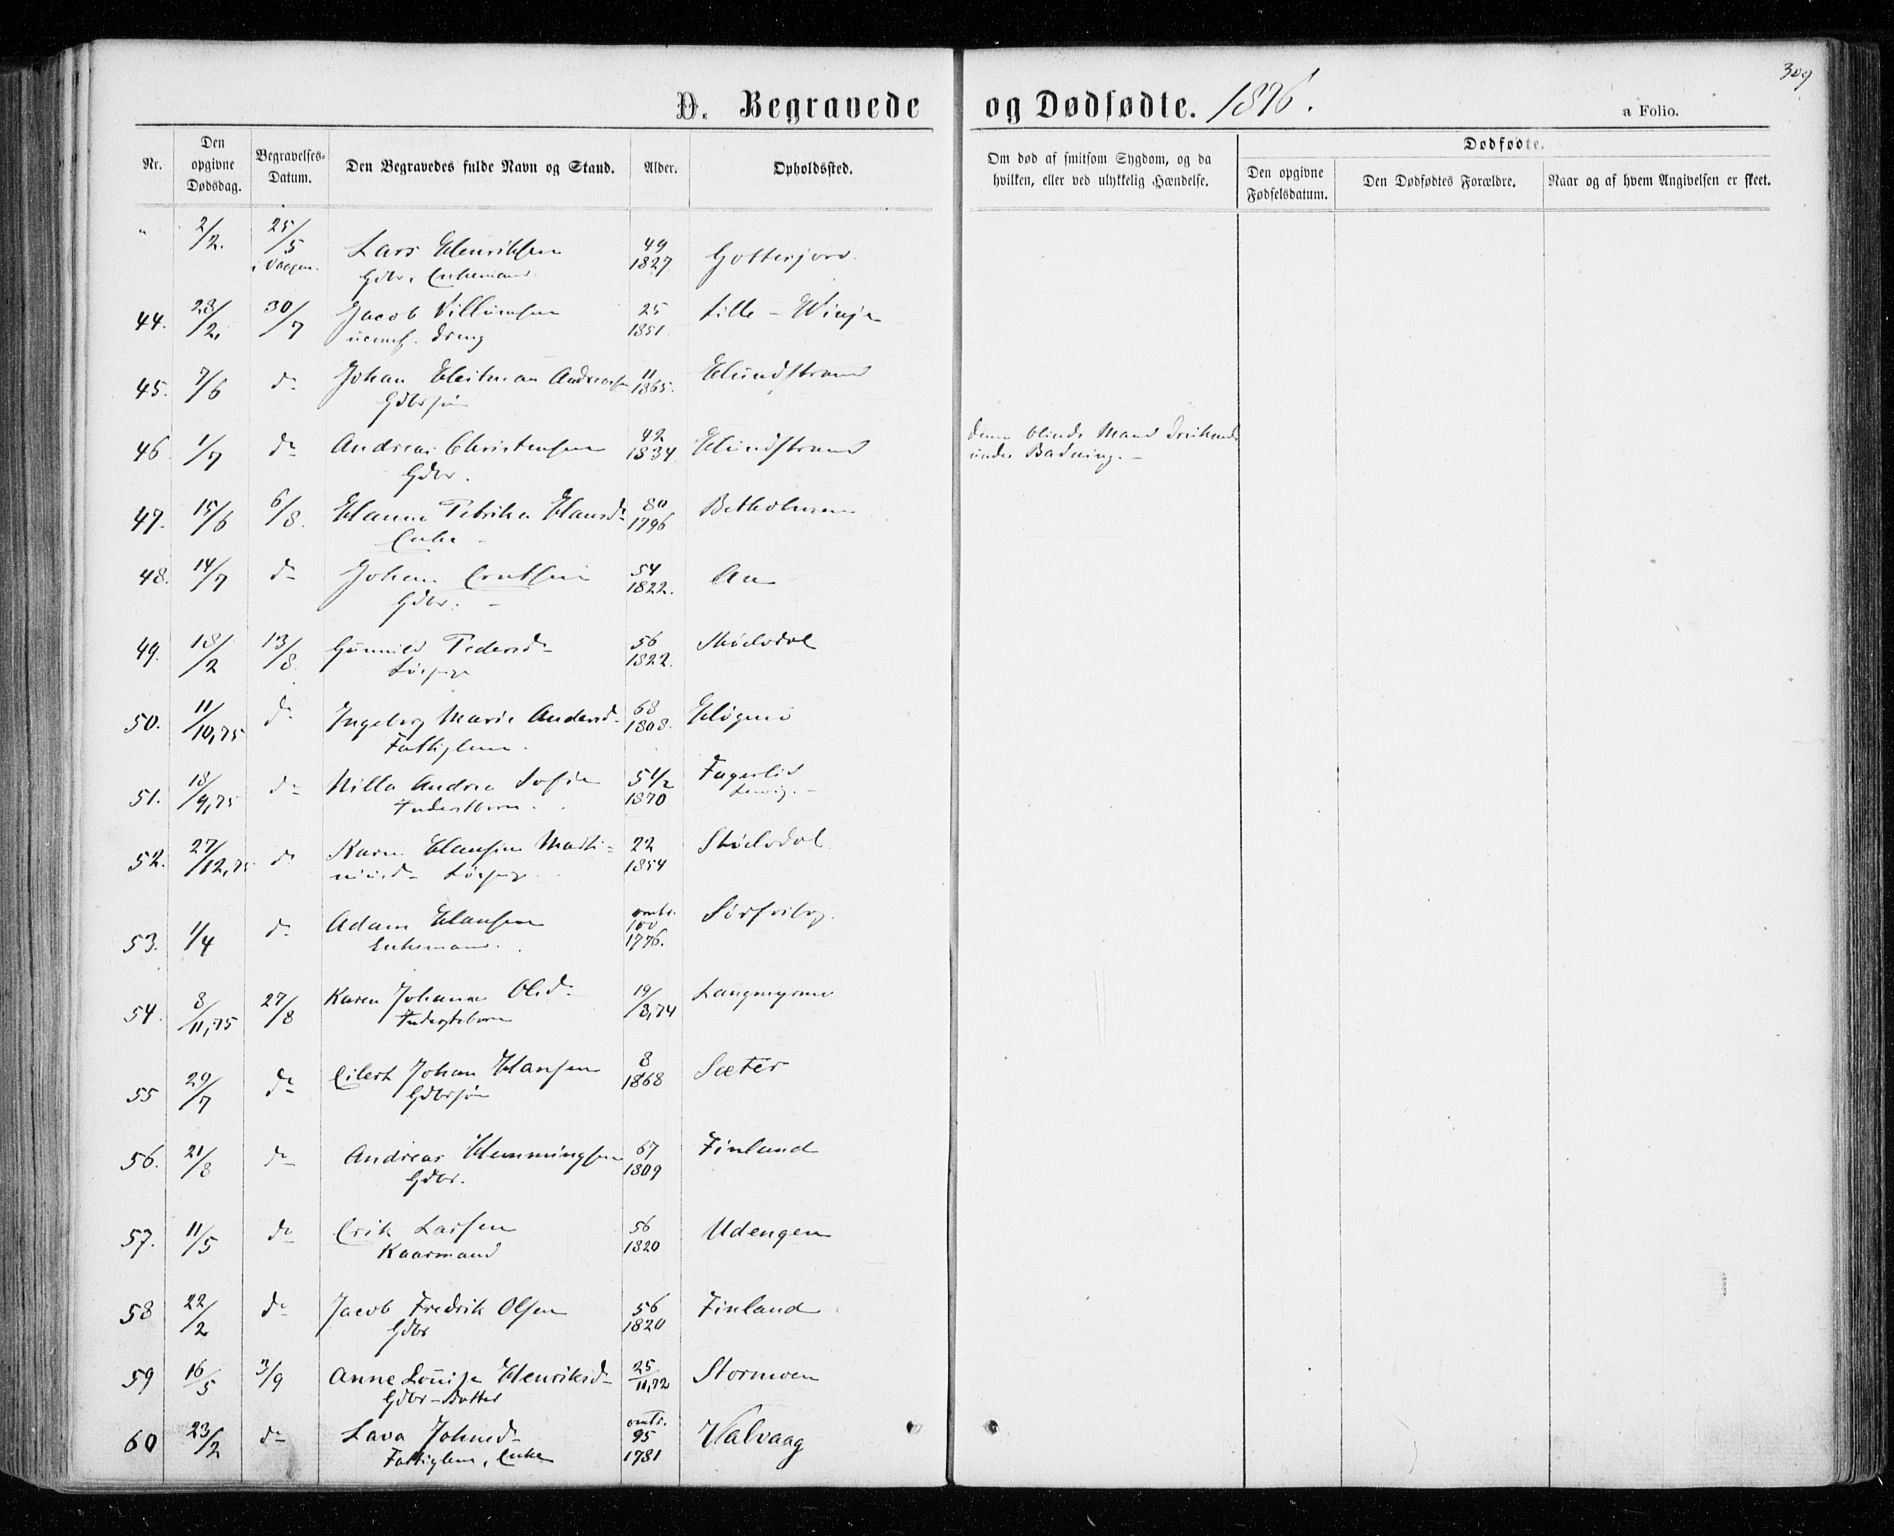 309
D. Begravede og Dødfødte. 1876.
a Folio.
Nr. | Den opgivne Dødsdag. | Begravelses-Datum. | Den Begravedes fulde Navn og Stand. | Alder. | Opholdssted. | Om død af smitsom Sygdom, og da hvilken, eller ved ulykkelig Hændelse. | Dødfødte.
Den opgivne Fødselsdatum. | Den Dødfødtes Forældre. | Naar og af hvem Angivelsen er skeet.
" 2/2. 25/5 Lars Henriksen 49 1827
Gdbr, Enkemand
44. 23/2, 30/7 Jacob Villumsen 25 1851. Lille-Vinje
uconf. Dreng
45. 7/6 do Johan Andreassen 11 1865. Hundstrand
Gdbrsøn
46 1/7 do Andreas Christensen 42 1834 Hundstrand denne blinde Mand druknede
Gdbr. under Badning. -
47. 15/6 6/8. Hanna Petrikea Hansd. 80 1796 Betholmen
Enke -
48. 14/7 do Johan 54 1822.
Gdbr. -
49. 18/2 13/8 Gunnild Pedersd. 56 1822.
50. 11/10,75 do Ingeborg Marie Andersd. 68 1808.
Fattiglem.
51. 18/9,75 do Nilla Andrea Sofie 5 1/2 1870 Fagerlid
52. 27/12,75 do Karen Hansine Marti-
nusd. 22 1854
53. 1/4 do Adam Hansen omtr. 100 1776.
Enkemand.
54. 8/11,75 27/8 Karen Johanna Olsd. 19/3,74 Langmyrmo
55 29/7 do Eilert Johan Hansen 8 1868 Sæter
Gdbrsøn
56. 21/8 do Andreas Hemmingsen 67 1809 Finland
Gdbr.
57. 11/5 do Erik Larsen 56 1820 Udengen
Kaarmand
58 22/2 do Jacob Fredrik Olsen 56 1820 Finland
Gdbr
59 16/5 3/9 Anne Louise Henriksd. 25/11,72 Stormoen
Gdbr-Datter
60 23/2 do Lava Johnsd. omtr. 95 1781 Valvaag
Fattiglem, Enke